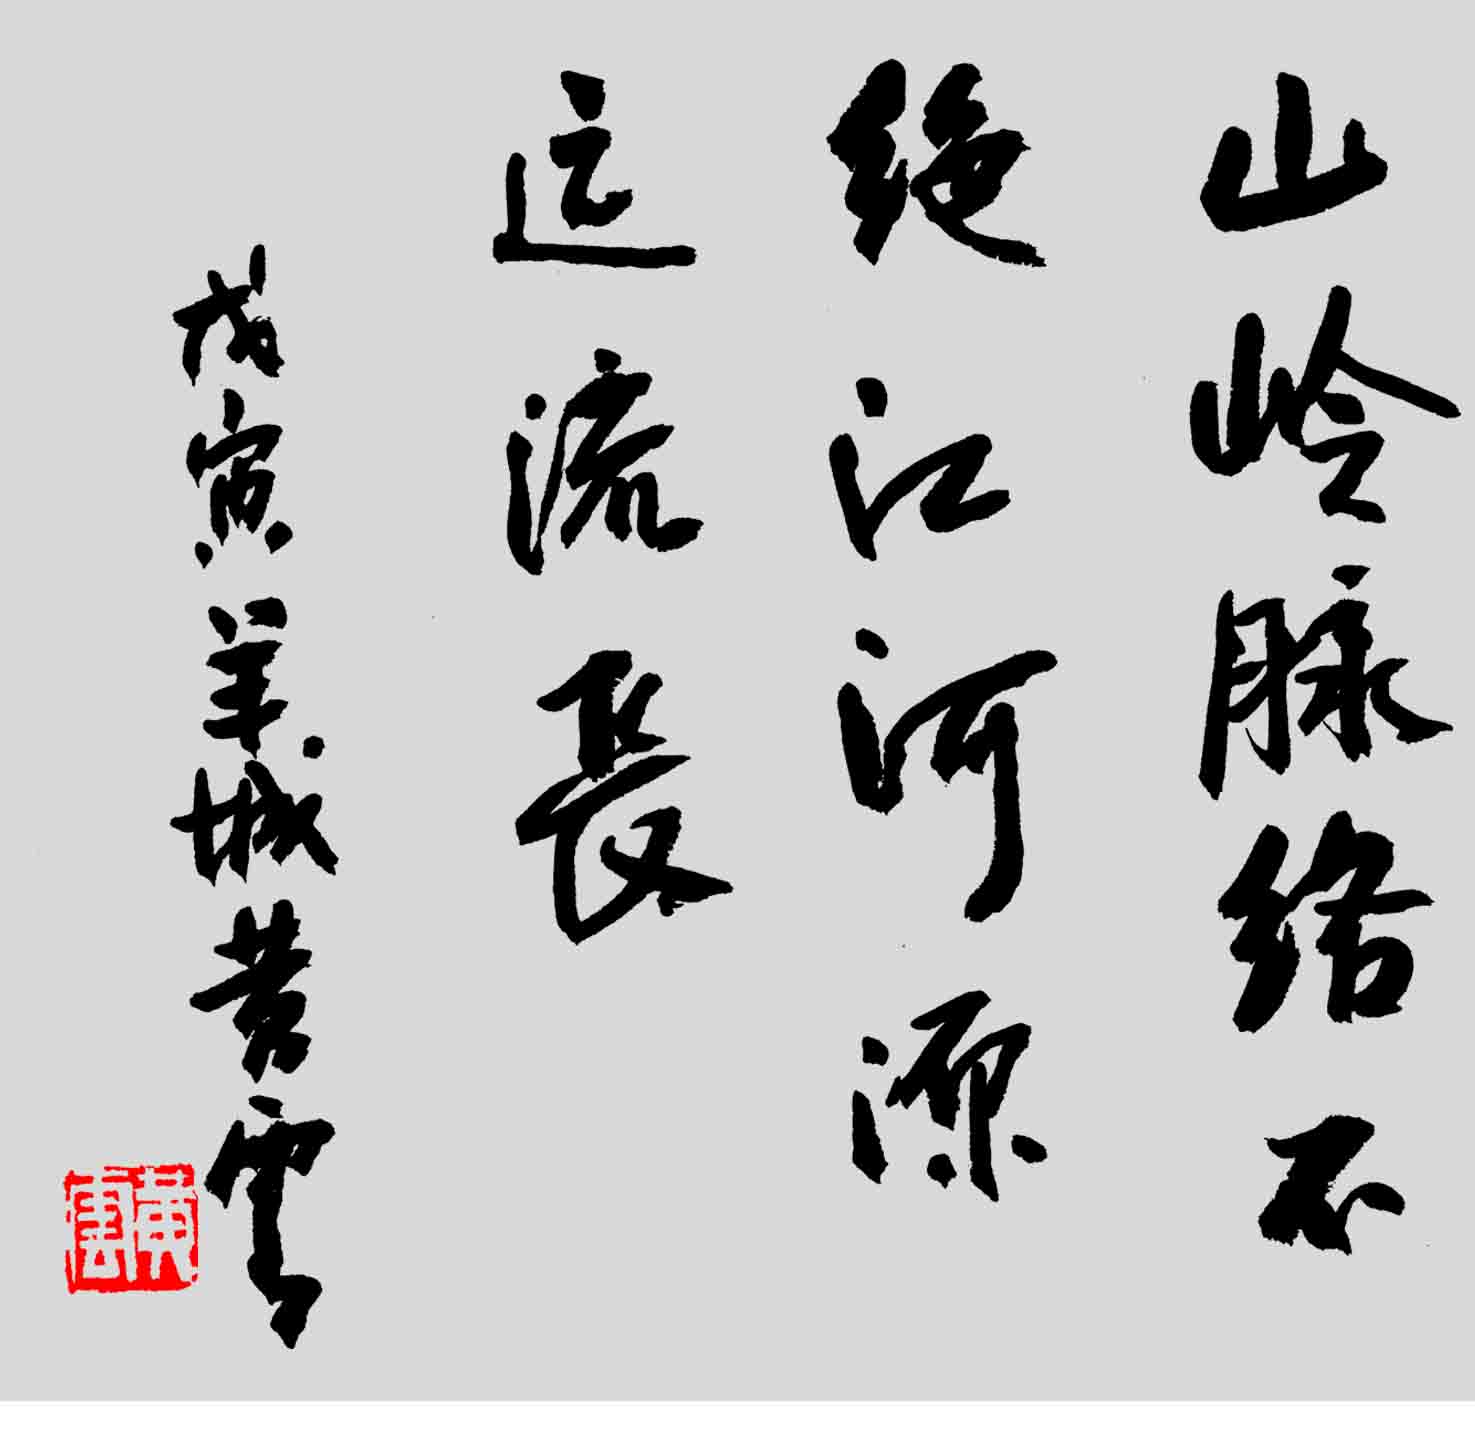 山岭脉络不
绝江河源
远流長
戊寅羊城黄雲
黄雲